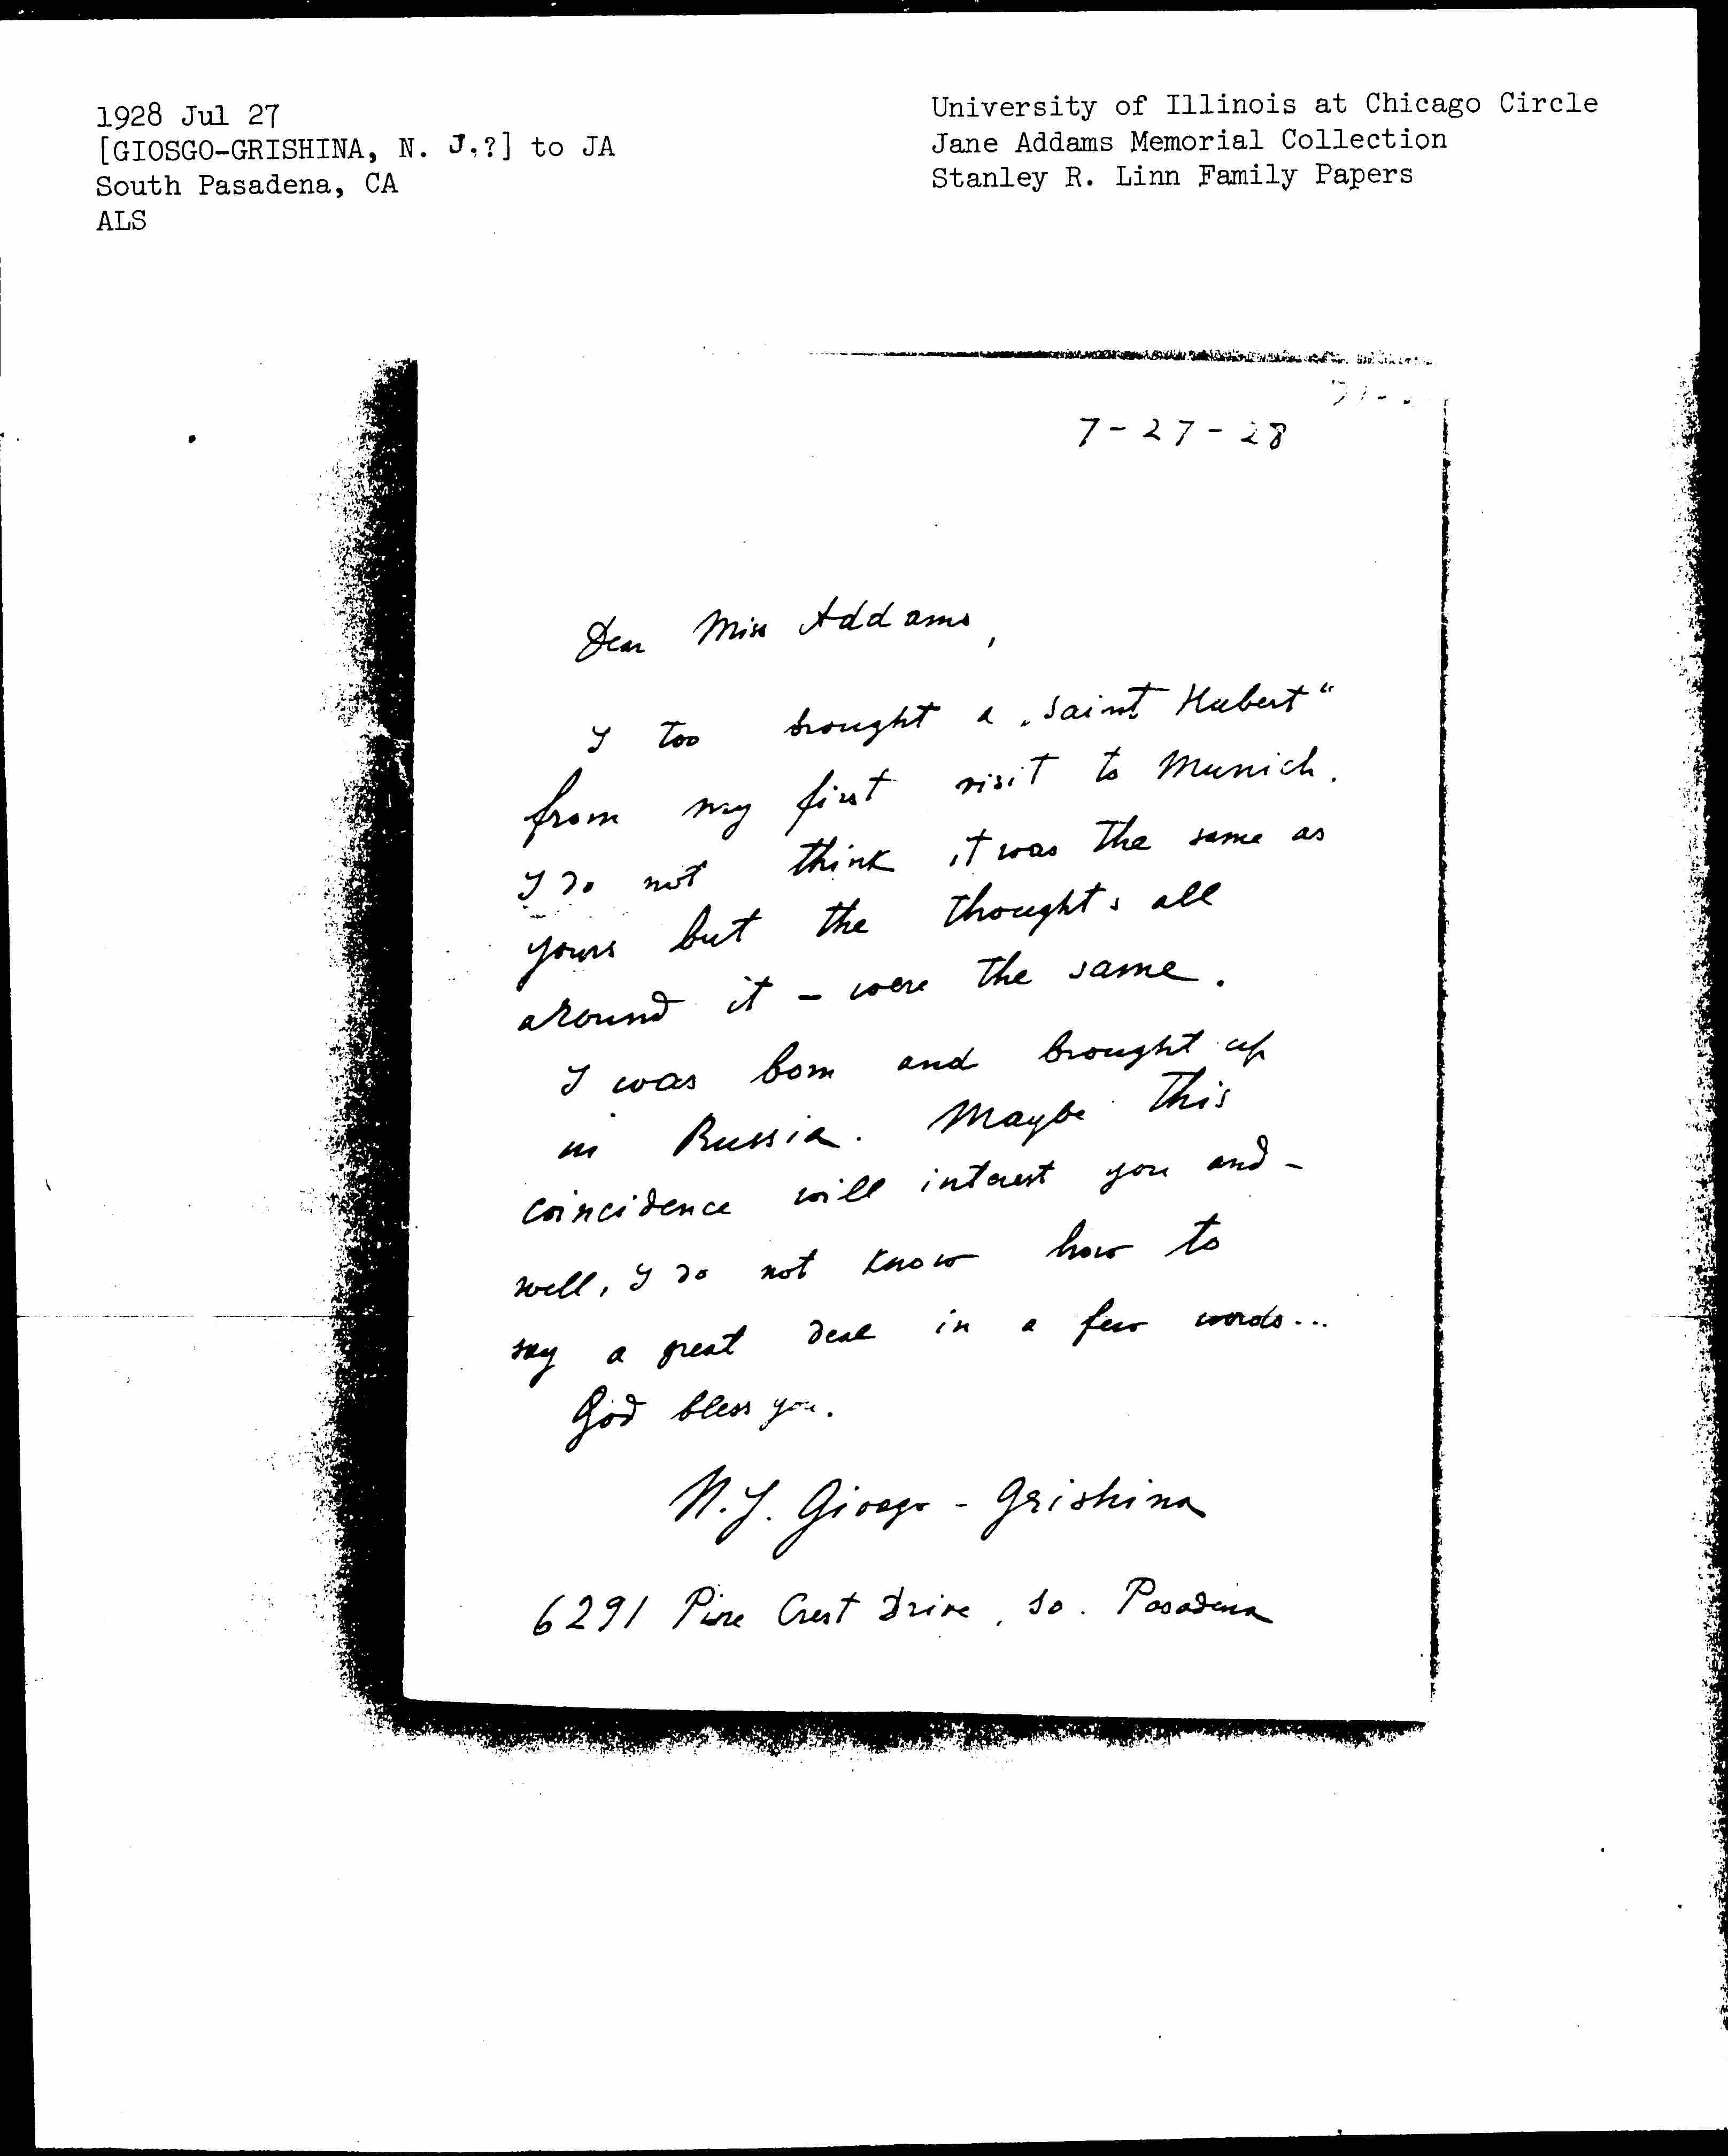 1928 Jul 27
[GIOSGO-GRISHINA, N. J.?] to JA
South Pasadena, CA
ALS
University of Illinois at Chicago Circle
Jane Addams Memorial Collection
Stanley R. Linn Family Papers
7-27-28
Dear Miss Addams,
I too brought a „Saint Hubert“
from my first visit to Munich.
I do not think it was the same as
yours but the thoughts all
around it – were the same.
I was born and brought up
in Russia. Maybe this
coincidence will interest you and –
well, I do not know how to
say a great deal in a few words...
God bless you.
N. J. Giosgo - Grishina
6291 Pine Crest Drive, So. Pasadena